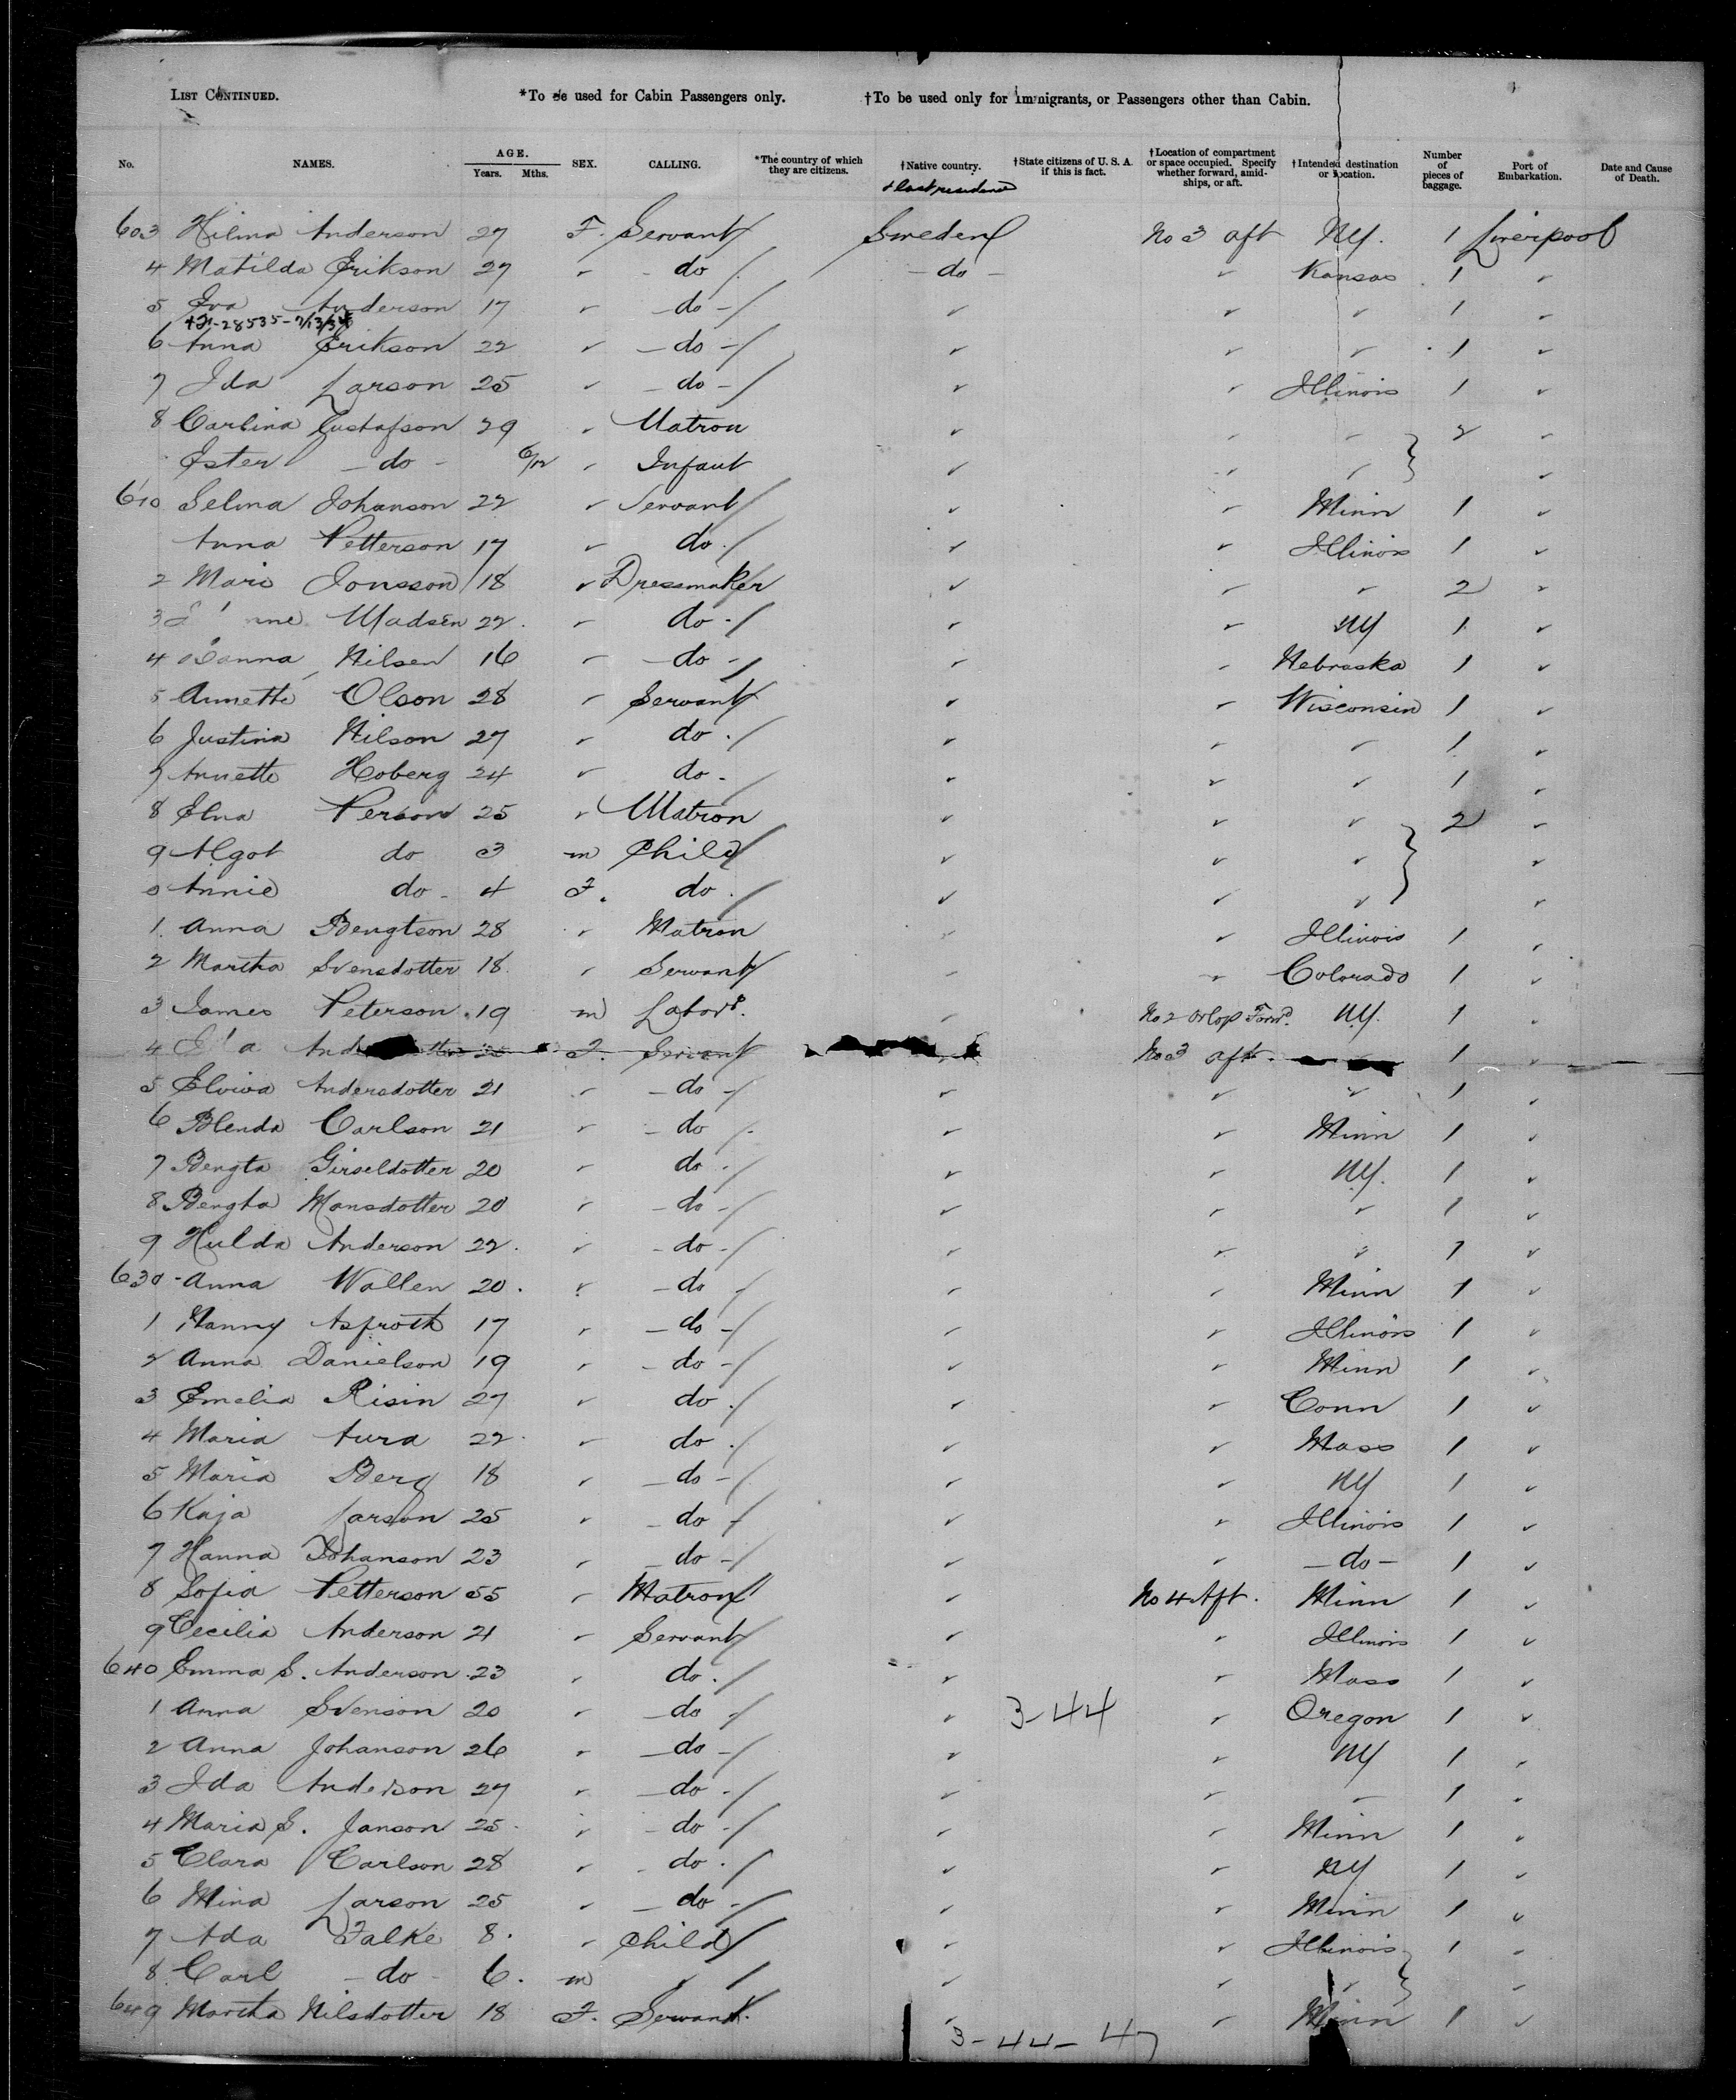 LIST CONTINUED. *To be used for Cabin Passengers only. †To be used only for Immigrants, or Passengers other than Cabin.
No. NAMES. AGE. Years. Mths. SEX. CALLING. *The country of which they are citizens. †Native country. & last residence †State citizens of U. S. A. if this is fact. †Location of compartment or space occupied. Specify whether forward, amid-ships, or aft. †Intended destination or location. Number of pieces of baggage. Port of Embarkation. Date and Cause of Death.
603 Hilma Anderson 27 F. Servant Sweden No 3 aft NY. 1 Liverpool
4 Matilda Erikson 27 " do - do - " Kansas 1 "
5 Eva Anderson 17 " - do - " " " 1 "
6 Anna Erikson 22 " - do - " " " 1 "
7 Ida Larson 25 " - do - " " Illinois 1 "
8 Carlina Gustafson 29 " Matron " " " 2 "
Ester - do - 6/12 " Infant " " " "
610 Selma Johanson 22 " Servant " " Minn 1 "
Anna Petterson 17 " do. " " Illinois 1 "
2 Mari Jonsson 18 " Dressmaker " " " 2 "
3 Madsen 22. " do - " " NY 1 "
4 Nilsen 16 " - do - " " Nebraska 1 "
5 Annette Olson 28 " Servant " " Wisconsin 1 "
6 Justina Nilson 27 " do. " " " 1 "
7 Annette Hoberg 24 " do - " " " 1 "
8 Elna Person 25 " Matron " " " 2 "
9 Algot do 3 m Child " " " "
0 Annie do - 4 F. do. " " " "
1. Anna Bengtson 28 " Matron " " Illinois 1 "
2 Martha Svensdotter 18. " Servant " " Colorado 1 "
3 James Peterson 19 m Labor. " No 2 Orlop Forwd. NY. 1 "
4 F. Servant No 3 aft. 1 "
5 Elviva Andersdotter 21 " - do - " " " 1 "
6 Blenda Carlson 21 " - do - " " Minn 1 "
7 Bengta Girseldotter 20 " do - " " NY. 1 "
8 Bengta Monsdotter 20 " - do - " " " 1 "
9 Hulda Anderson 22. " - do - " " " 1 "
630 Anna Wallen 20. " - do - " " Minn 1 "
1 Nanny Asproth 17 " - do - " " Illinois 1 "
2 Anna Danielson 19 " - do - " " Minn 1 "
3 Emelia Risin 27 " do. " " Conn 1 "
4 Maria Aura 22. " do. " " Mass 1 "
5 Maria Berg 18 " - do - " " NY 1 "
6 Kaja Larson 25 " - do - " " Illinois 1 "
7 Hanna Johanson 23 " - do - " " - do - 1 "
8 Sofia Petterson 55 " Matron " No 4 Aft. Minn 1 "
9 Cecilia Anderson 21 " Servant " " Illinois 1 "
640 Emma S. Anderson 23 " do. " " Mass 1 "
1 Anna Svenson 20 " - do - " 3-44 " Oregon 1 "
2 Anna Johanson 26 " - do - " " NY 1 "
3 Ida Anderson 27 " - do - " " " 1 "
4 Maria S. Janson 25. " - do - " " Minn 1 "
5 Clara Carlson 28 " - do. " " NY 1 "
6 Mina Larson 25 " - do - " " Minn 1 "
7 Ada Falke 8. " Child " " Illinois 1 "
8 Carl - do - 6. m " " " " "
649 Martha Nilsdotter 18 F. Servant. " " Minn 1 "
3-44-47